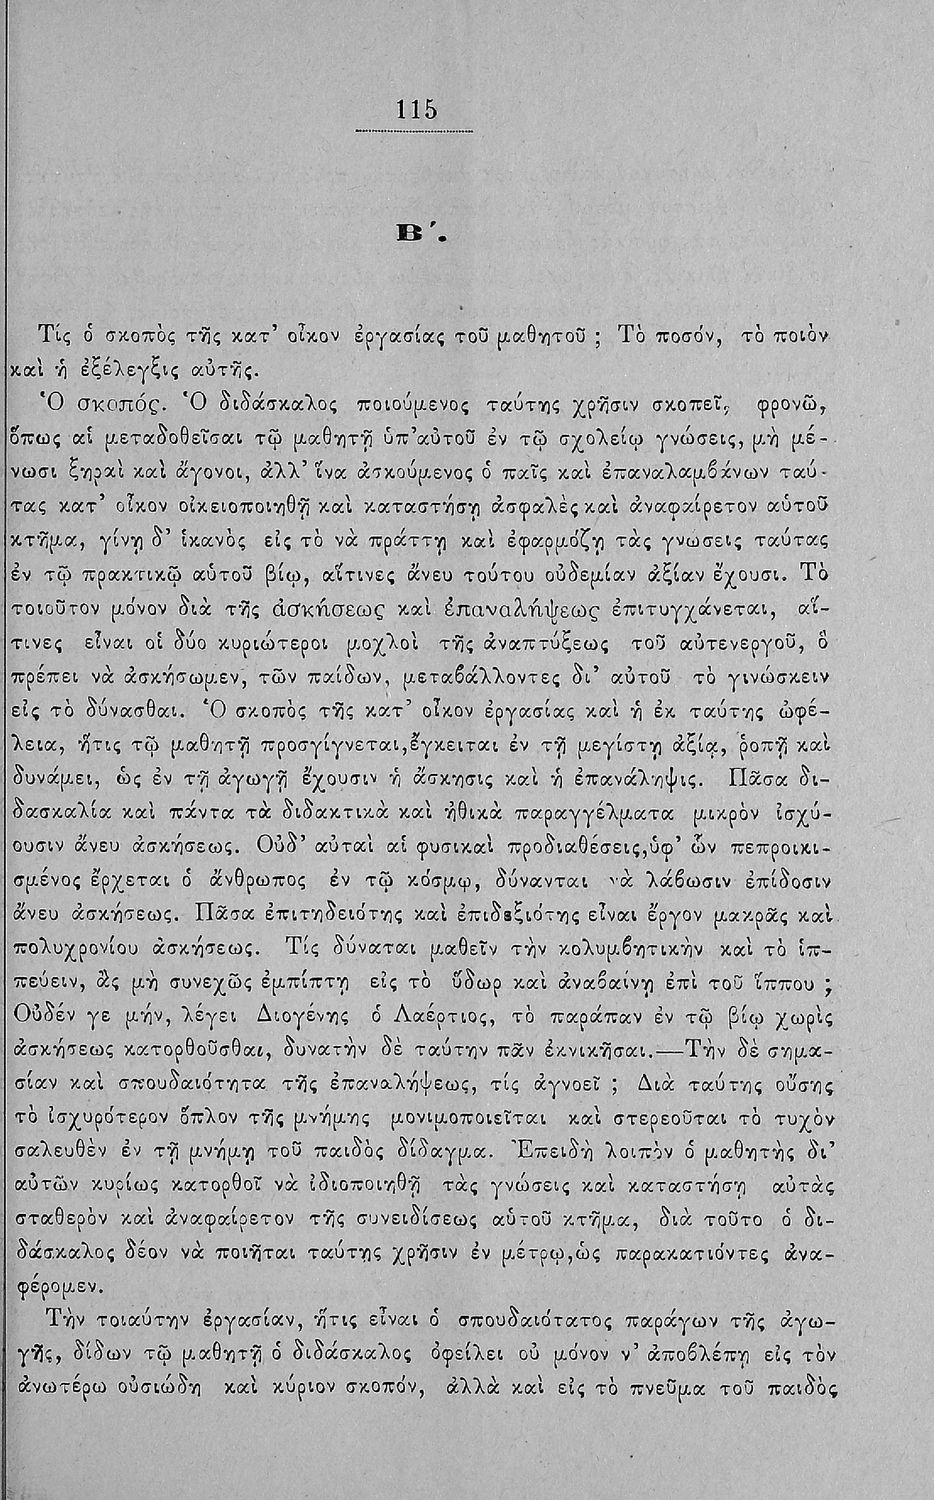 115
Β΄.
Τίς ὁ σκοπὸς τῆς κατ’ οἶκον ἐργασίας τοῦ μαθητοῦ ; Τὸ ποσόν, τὸ ποιὸν
καὶ ἡ ἐξέλεγξις αὐτῆς.
Ὁ σκοπός. Ὁ διδάσκαλος ποιούμενος ταύτης χρῆσιν σκοπεῖ, φρονῶ,
ὅπως αἱ μεταδοθεῖσαι τῷ μαθητῇ ὑπ’αὐτοῦ ἐν τῷ σχολείῳ γνώσεις, μὴ μέ-
νωσι ξηραὶ καὶ ἄγονοι, ἀλλ’ ἵνα ἀσκούμενος ὁ παῖς καὶ ἐπαναλαμβάνων ταύ-
τας κατ’ οἶκον οἰκειοποιηθῇ καὶ καταστήσῃ ἀσφαλὲς καὶ ἀναφαίρετον αὑτοῦ
κτῆμα, γίνῃ δ’ ἱκανὸς εἰς τὸ νὰ πράττῃ καὶ ἐφαρμόζῃ τὰς γνώσεις ταύτας
ἐν τῷ πρακτικῷ αὑτοῦ βίῳ, αἵτινες ἄνευ τούτου οὐδεμίαν ἀξίαν ἔχουσι. Τὸ
τοιοῦτον μόνον διὰ τῆς ἀσκήσεως καὶ ἐπαναλήψεως ἐπιτυγχάνεται, αἵ-
τινες εἶναι οἱ δύο κυριώτεροι μοχλοὶ τῆς ἀναπτύξεως τοῦ αὐτενεργοῦ, ὃ
πρέπει νὰ ἀσκήσωμεν, τῶν παίδων, μεταβάλλοντες δι’ αὐτοῦ τὸ γινώσκειν
εἰς τὸ δύνασθαι. Ὁ σκοπὸς τῆς κατ’ οἶκον ἐργασίας καὶ ἡ ἐκ ταύτης ὠφέ-
λεια, ἥτις τῷ μαθητῇ προσγίγνεται,ἔγκειται ἐν τῇ μεγίστῃ ἀξίᾳ, ῥοπῇ καὶ
δυνάμει, ὡς ἐν τῇ ἀγωγῇ ἔχουσιν ἡ ἄσκησις καὶ ἡ ἐπανάληψις. Πᾶσα δι-
δασκαλία καὶ πάντα τὰ διδακτικὰ καὶ ἠθικὰ παραγγέλματα μικρὸν ἰσχύ-
ουσιν ἄνευ ἀσκήσεως. Οὐδ’ αὐταὶ αἱ φυσικαὶ προδιαθέσεις,ὑφ’ ὧν πεπροικι-
σμένος ἔρχεται ὁ ἄνθρωπος ἐν τῷ κόσμῳ, δύνανται νὰ λάβωσιν ἐπίδοσιν
ἄνευ ἀσκήσεως. Πᾶσα ἐπιτηδειότης καὶ ἐπιδεξιότης εἶναι ἔργον μακρᾶς καὶ
πολυχρονίου ἀσκήσεως. Τίς δύναται μαθεῖν τὴν κολυμβητικὴν καὶ τὸ ἱπ-
πεύειν, ἂς μὴ συνεχῶς ἐμπίπτῃ εἰς τὸ ὕδωρ καὶ ἀναβαίνῃ ἐπὶ τοῦ ἵππου ;
Οὐδέν γε μήν, λέγει Διογένης ὁ Λαέρτιος, τὸ παράπαν ἐν τῷ βίῳ χωρὶς
ἀσκήσεως κατορθοῦσθαι, δυνατὴν δὲ ταύτην πᾶν ἐκνικῆσαι.—Τὴν δὲ σημα-
σίαν καὶ σπουδαιότητα τῆς ἐπαναλήψεως, τίς ἀγνοεῖ ; Διὰ ταύτης οὔσης
τὸ ἰσχυρότερον ὅπλον τῆς μνήμης μονιμοποιεῖται καὶ στερεοῦται τὸ τυχὸν
σαλευθὲν ἐν τῇ μνήμῃ τοῦ παιδὸς δίδαγμα. Ἐπειδὴ λοιπὸν ὁ μαθητὴς δι’
αὐτῶν κυρίως κατορθοῖ νὰ ἰδιοποιηθῇ τὰς γνώσεις καὶ καταστήσῃ αὐτὰς
σταθερὸν καὶ ἀναφαίρετον τῆς συνειδίσεως αὑτοῦ κτῆμα, διὰ τοῦτο ὁ δι-
δάσκαλος δέον νὰ ποιῆται ταύτης χρῆσιν ἐν μέτρῳ,ὡς παρακατιόντες ἀνα-
φέρομεν.
Τὴν τοιαύτην ἐργασίαν, ἥτις εἶναι ὁ σπουδαιότατος παράγων τῆς ἀγω-
γῆς, δίδων τῷ μαθητῇ ὁ διδάσκαλος ὀφείλει οὐ μόνον ν’ ἀποβλέπῃ εἰς τὸν
ἀνωτέρω οὐσιώδη καὶ κύριον σκοπόν, ἀλλὰ καὶ εἰς τὸ πνεῦμα τοῦ παιδὸς